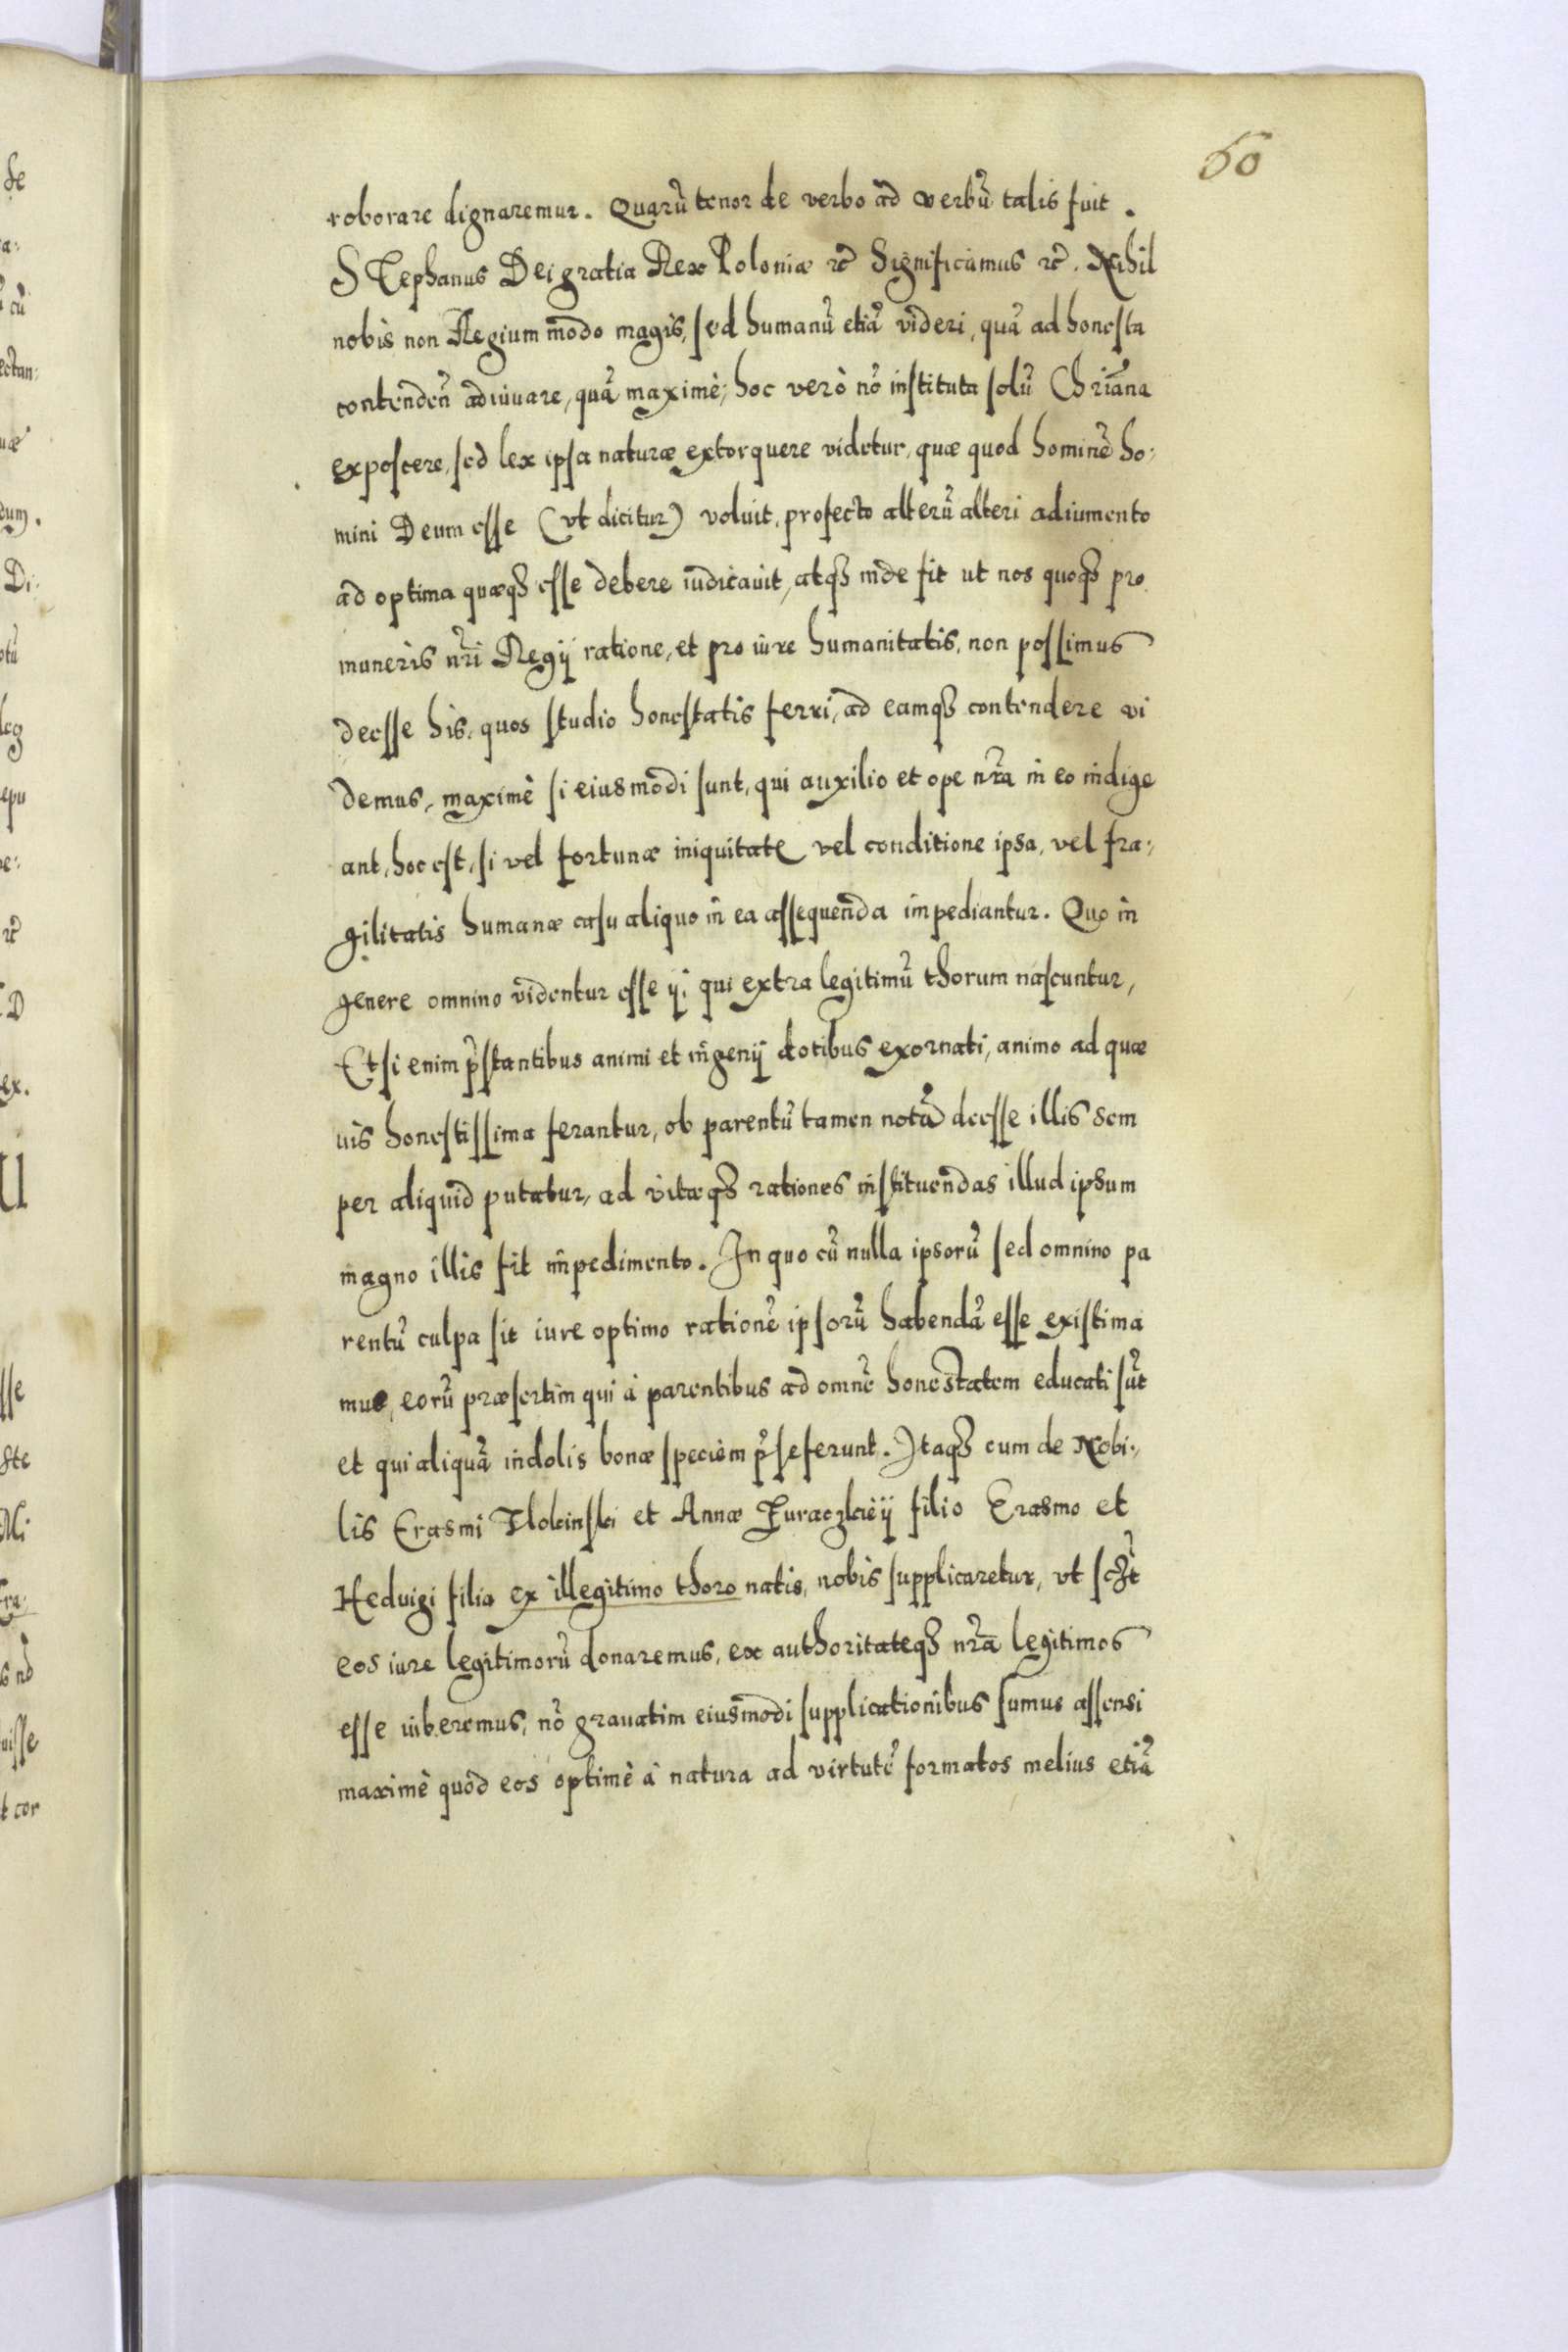 60
roborare dignaremur. Quarũ tenor de verbo ad verbũ talis fuit.
STephanus Dei gratia Rex Poloniæ etc̃ Significamus etc̃. Nihil
nobis non Regium modo magis, sed humanũ etiã videri, quã ad honesta
contendeñ adiuuare, quã maximè, hoc verò nõ instituta solũ Chriãna
exposcere, sed lex ipsa naturæ extorquere videtur, quæ quod hominẽ ho-
mini Deum esse (vt dicitur) voluit, profecto alterũ alteri adiumento
ad optima quæqȝ esse debere iudicauit, atqȝ inde fit ut nos quoqȝ pro
muneris nr̃i Regij ratione, et pro iure humanitatis, non possimus
deesse his, quos studio honestatis ferri, ad eamqȝ contendere vi
demus, maximè si eiusmodi sunt, qui auxilio et ope nr̃a in eo indige
ant, hoc est, si vel fortunæ iniquitate vel conditione ipsa, vel fra-
gilitatis humanæ casu aliquo in ea assequenda impediantur. Quo in
genere omnino videntur esse ij, qui extra legitimũ thorum nascuntur,
Etsi enim p̃stantibus animi et ingenij dotibus exornati, animo ad quæ
uis honestissima ferantur, ob parentũ tamen notã deesse illis sem
per aliquid putatur, ad vitæqȝ rationes instituendas illud ipsum
magno illis fit impedimento. In quo cũ nulla ipsorũ sed omnino pa
rentũ culpa sit iure optimo rationẽ ipsorũ habendã esse existima
mus, eorũ præsertim qui à parentibus ad omnẽ honestatem educati sũt
et qui aliquã indolis bonæ speciem p̃ se ferunt. Itaqȝ cum de Nobi-
lis Erasmi et Annæ filio Erasmo et
Heduigi filia ex illegitimo thoro natis, nobis supplicaretur, vt
eos iure legitimorũ donaremus, ex authoritateqȝ nr̃a legitimos
esse iuberemus, nõ grauatim eiusmodi supplicationibus sumus assensi
maximè quod eos optimè à natura ad virtutẽ formatos melius etiã